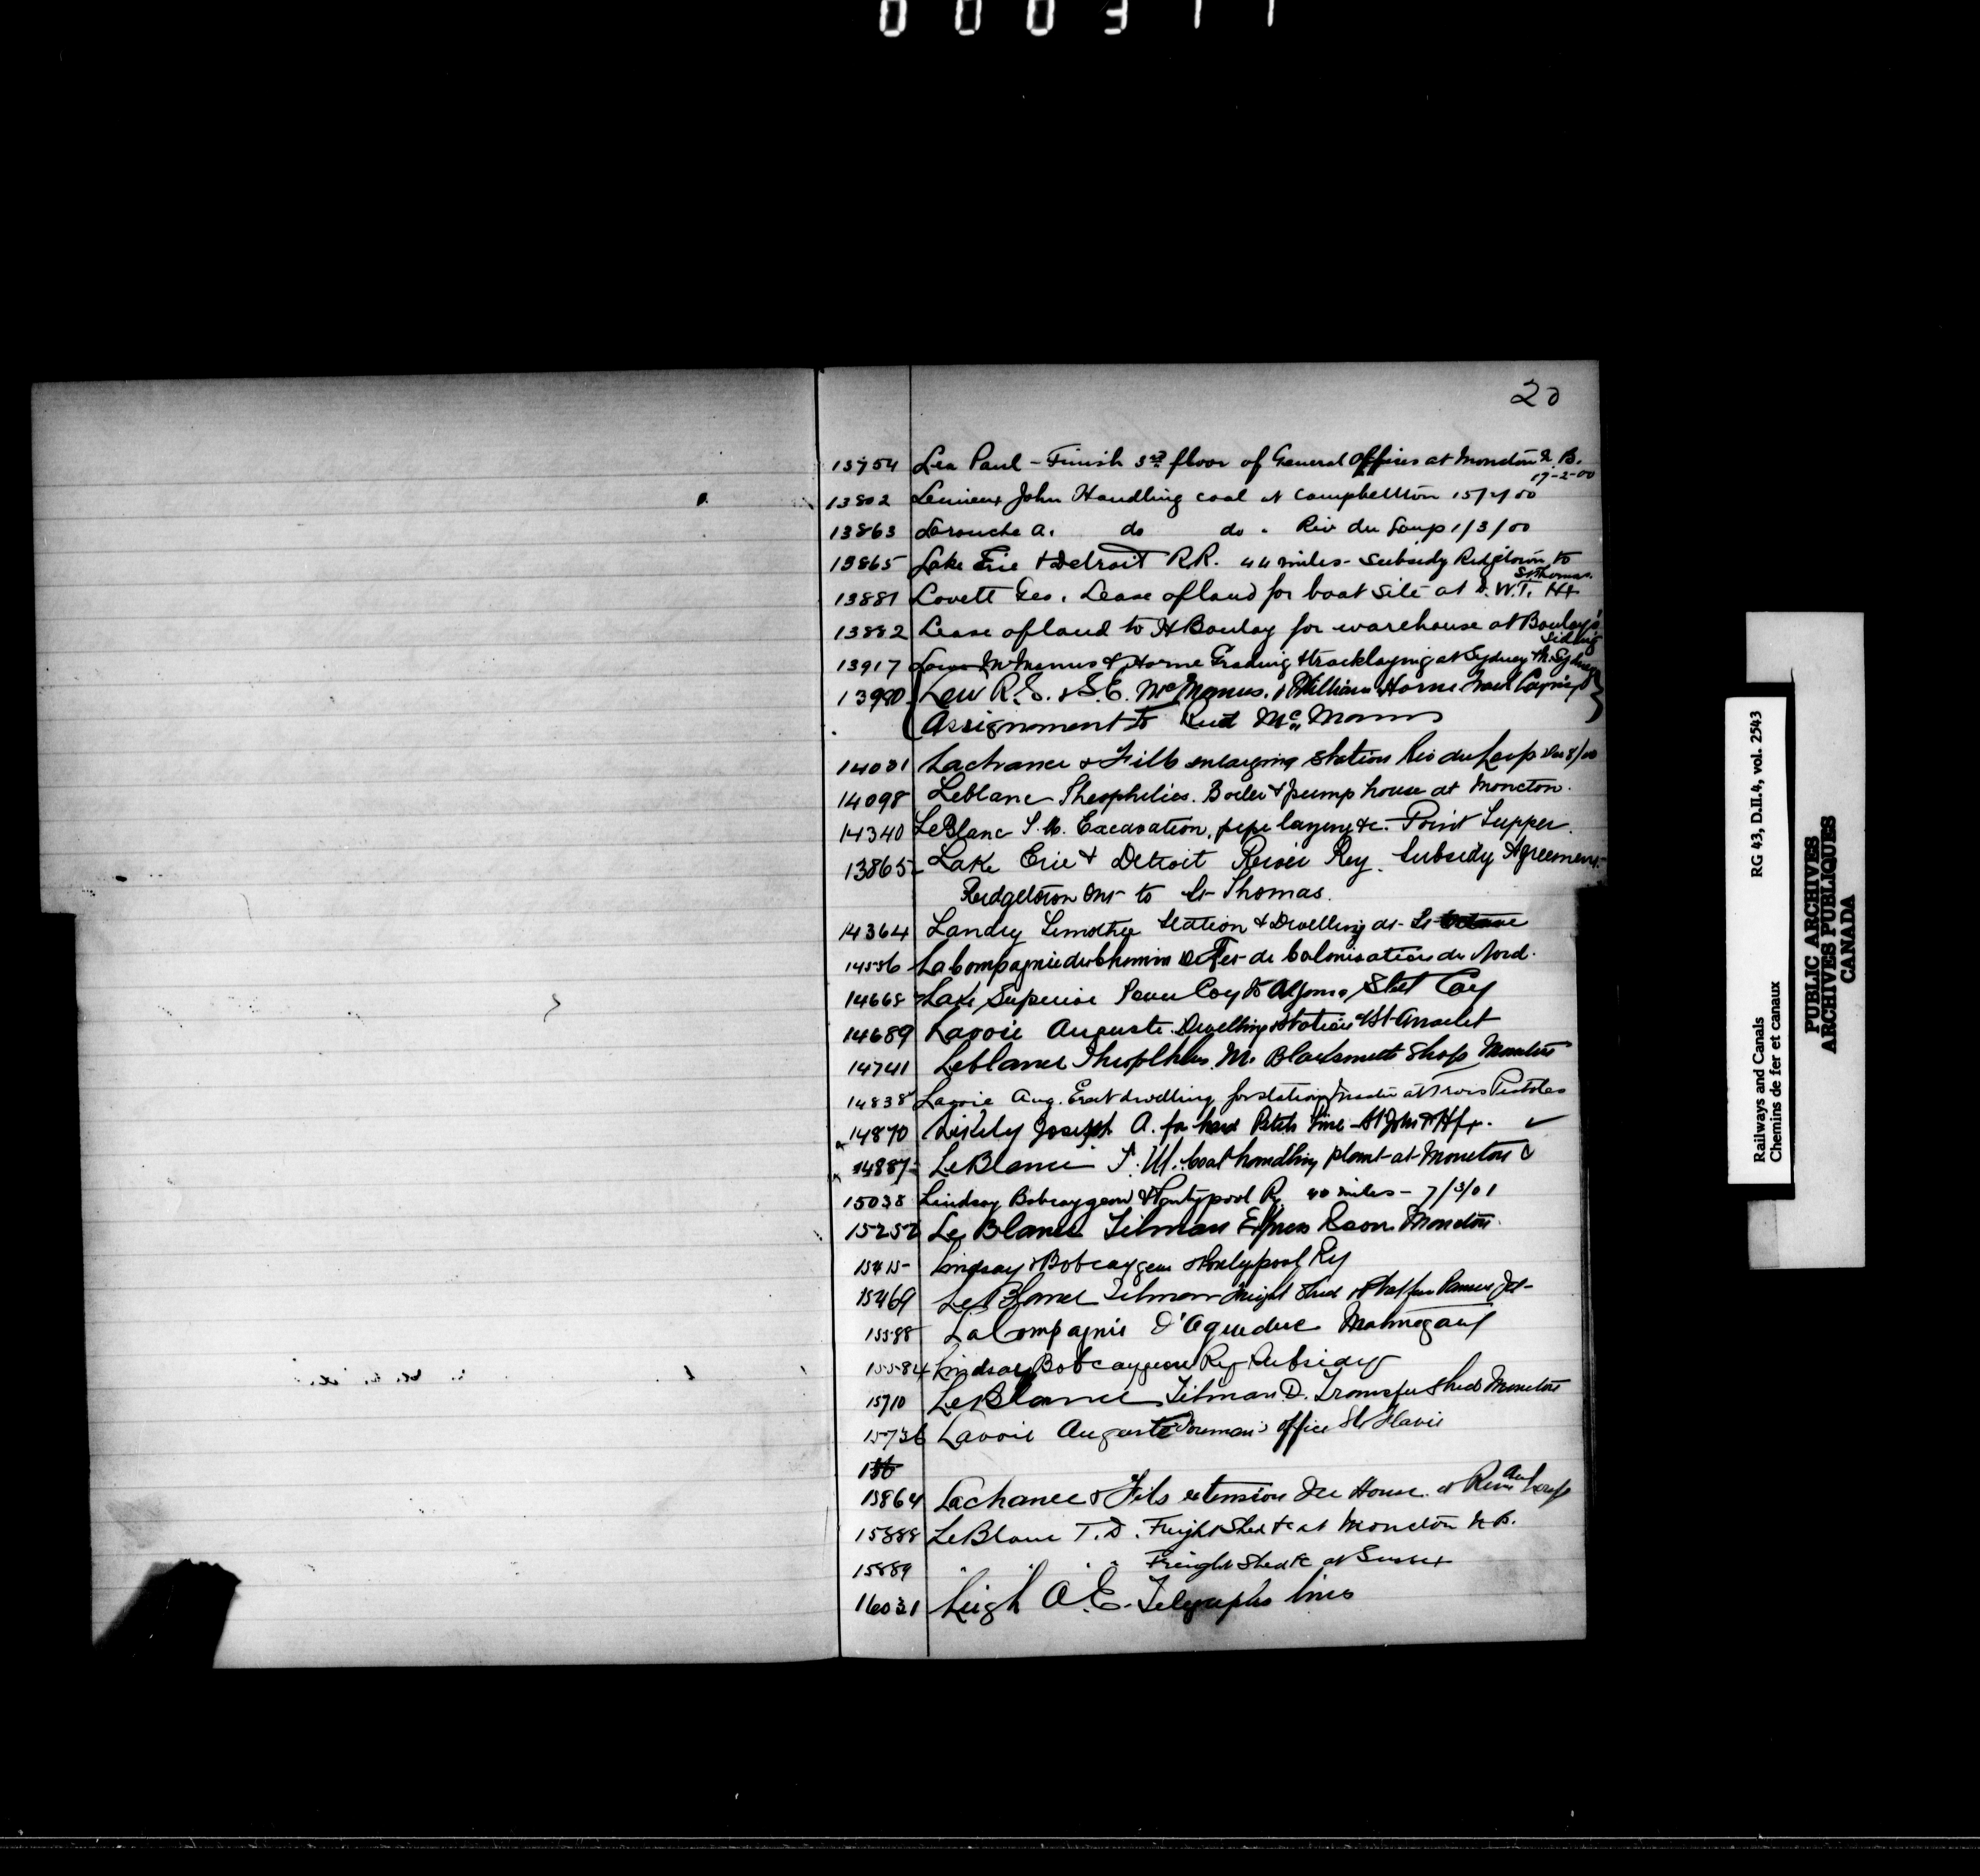 000377
20
13754 Lea Paul - Finish 3rd floor of General Offices at Moncton N.B.
17-2-00
13802 Lemieux John Handling coal at Campbellton 15/2/00
13863 Larouche A. do do. Riv du Loup 1/3/00
13865 Lake Erie & Detroit R.R. 44 miles - Subsidy Ridgetown to
St Thomas.
13881 Lovett Geo. Lease of land for boat site at D.W.T. Hx
13882 Lease of land to H Boulay for warehouse at Boulay's
Siding
13917 McManus & Horne Grading & tracklaying at Sydney & N. Sydney
13990 Law R.S. & S.E. McManus. & William Horne
Assignment to McManus
14001 Lachance & Fils enlarging station Riv du Loup 8/00
14098 Leblanc Theophilus. Boiler & pump house at Moncton.
14340 LeBlanc T.M. Excavation, pipe laying &c. Point Tupper.
13865 Lake Erie & Detroit River Ry. Subsidy Agreement
Ridgetown Ont to St Thomas.
14364 Landry Timothee Station & Dwelling at St Octave
14556 La Compagnie du Chemin De Fer de Colonisation du Nord.
14668 Lake Superior Power Coy to Algoma Steel Coy
14689 Lavoie Auguste. Dwelling & Station at St Anaclet
14741 Leblanc Theophilus M. Blacksmith Shop Moncton
14838 Lavoie Aug. Erect dwelling for station master at Trois Pistoles
14870 Likely Joseph A. for hard Pitch Pine - St John & Hfx. ✓
14887 LeBlanc T. M. Coal handling plant at Moncton
15038 Lindsay Bobcaygeon & Pontypool Ry 40 miles - 7/3/01
15252 Le Blanc Tilman Express Room Moncton.
15415 Lindsay & Bobcaygeon & Pontypool Ry
15469 LeBlanc Tilman freight Shed & Painsec Jct
15588 La Compagnie D'Aqueduc
15584 Lindsay Bobcaygeon Ry Subsidy
15710 LeBlanc Tilman D. Transfer Shed Moncton
15736 Lavoie Auguste Foreman's office Ste Flavie
15864 Lachance & Fils extension Ice House at Riviere du Loup
15888 LeBlanc T. D. Freight Shed &c at Moncton N.B.
15889 " " " " Freight Shed &c at Sussex
16031 Leigh O.E. Telegraph lines
Railways and Canals RG 43, D.II.4, vol. 2543
Chemins de fer et canaux
PUBLIC ARCHIVES
ARCHIVES PUBLIQUES
CANADA